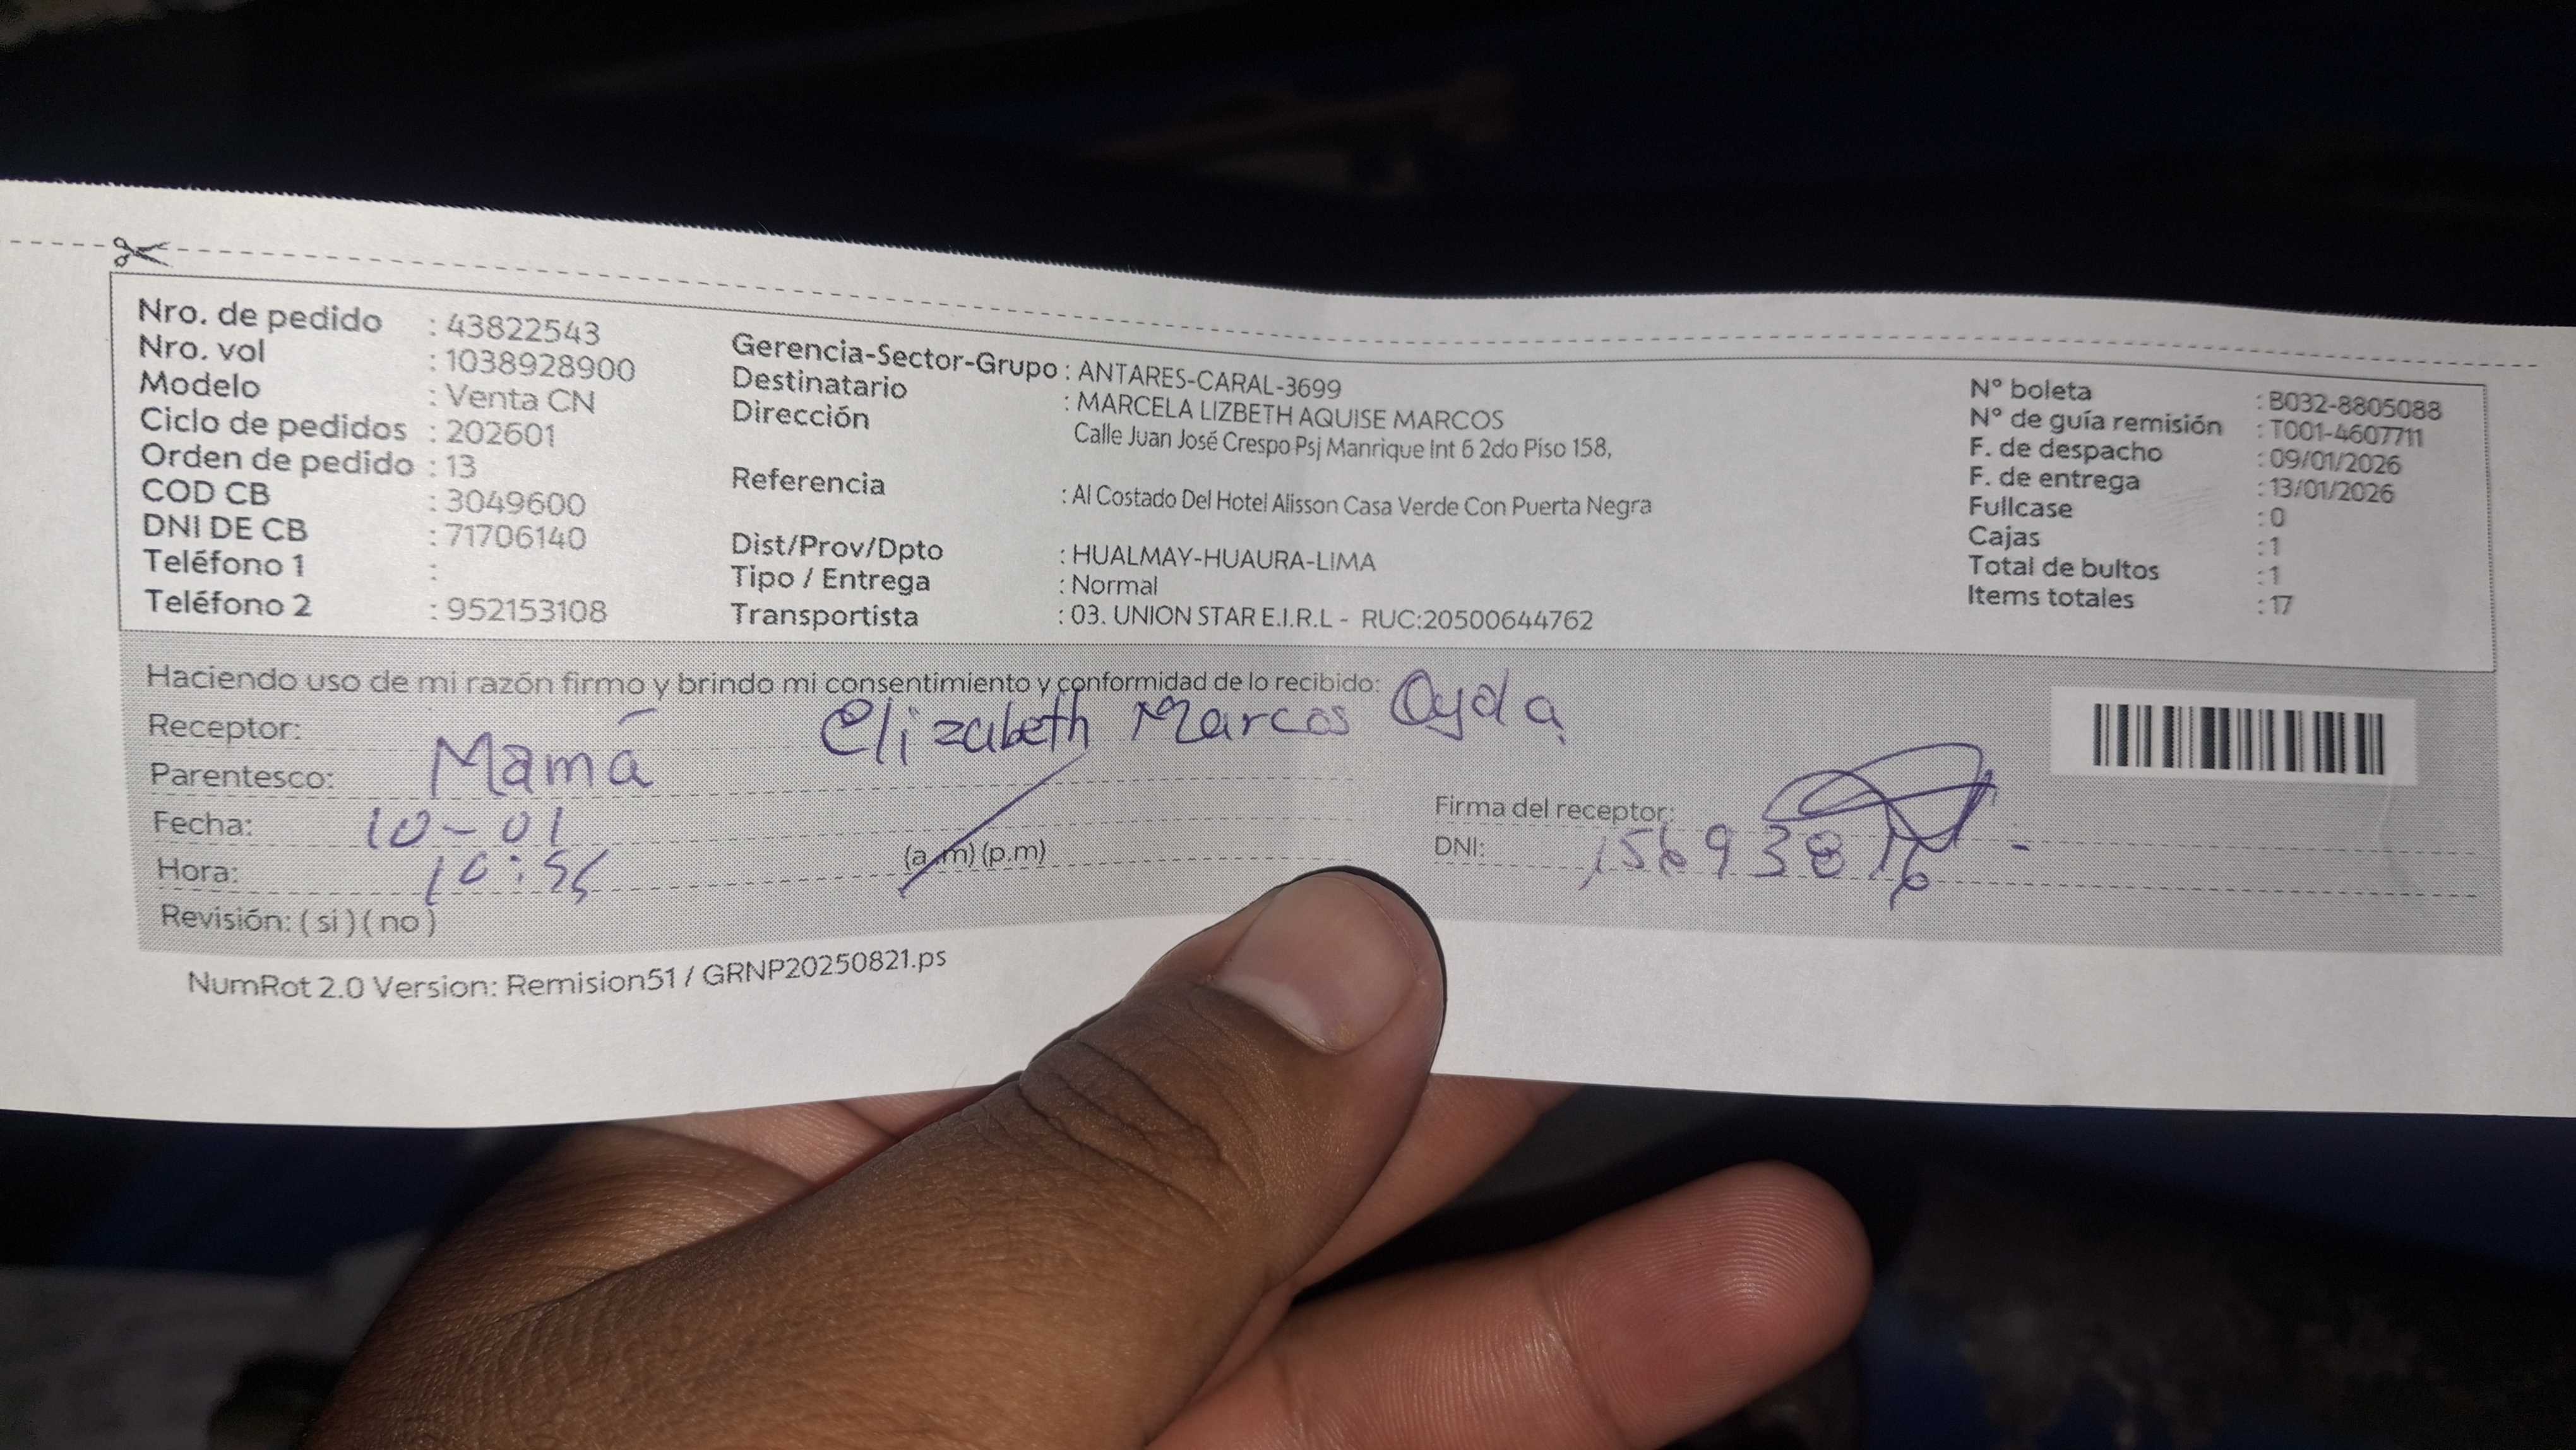 Nro. de pedido : 43822543
Nro. vol : 1038928900
Modelo : Venta CN
Ciclo de pedidos : 202601
Orden de pedido : 13
COD CB : 3049600
DNI DE CB : 71706140
Teléfono 1 :
Teléfono 2 : 952153108
Gerencia-Sector-Grupo : ANTARES-CARAL-3699
Destinatario : MARCELA LIZBETH AQUISE MARCOS
Dirección Calle Juan José Crespo Psj Manrique Int 6 2do Piso 158,
Referencia : Al Costado Del Hotel Alisson Casa Verde Con Puerta Negra
Dist/Prov/Dpto : HUALMAY-HUAURA-LIMA
Tipo / Entrega : Normal
Transportista : 03. UNION STAR E.I.R.L - RUC:20500644762
N° boleta : B032-8805088
N° de guía remisión : T001-4607711
F. de despacho : 09/01/2026
F. de entrega : 13/01/2026
Fullcase : 0
Cajas : 1
Total de bultos : 1
Items totales : 17
Haciendo uso de mi razón firmo y brindo mi consentimiento y conformidad de lo recibido:
Receptor: Elizabeth Marcos
Parentesco: Mamá
Fecha: 10-01
Hora: (a.m) (p.m)
Revisión: ( si ) ( no )
Firma del receptor:
DNI:
NumRot 2.0 Version: Remision51 / GRNP20250821.ps